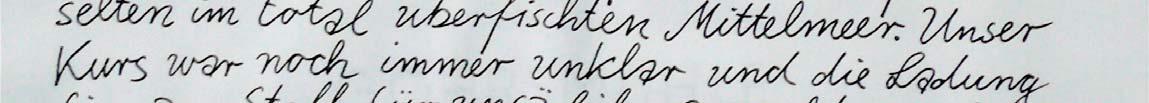 selten im total überfischten Mittelmeer. Unser
Kurs war noch immer unklar und die Ladung